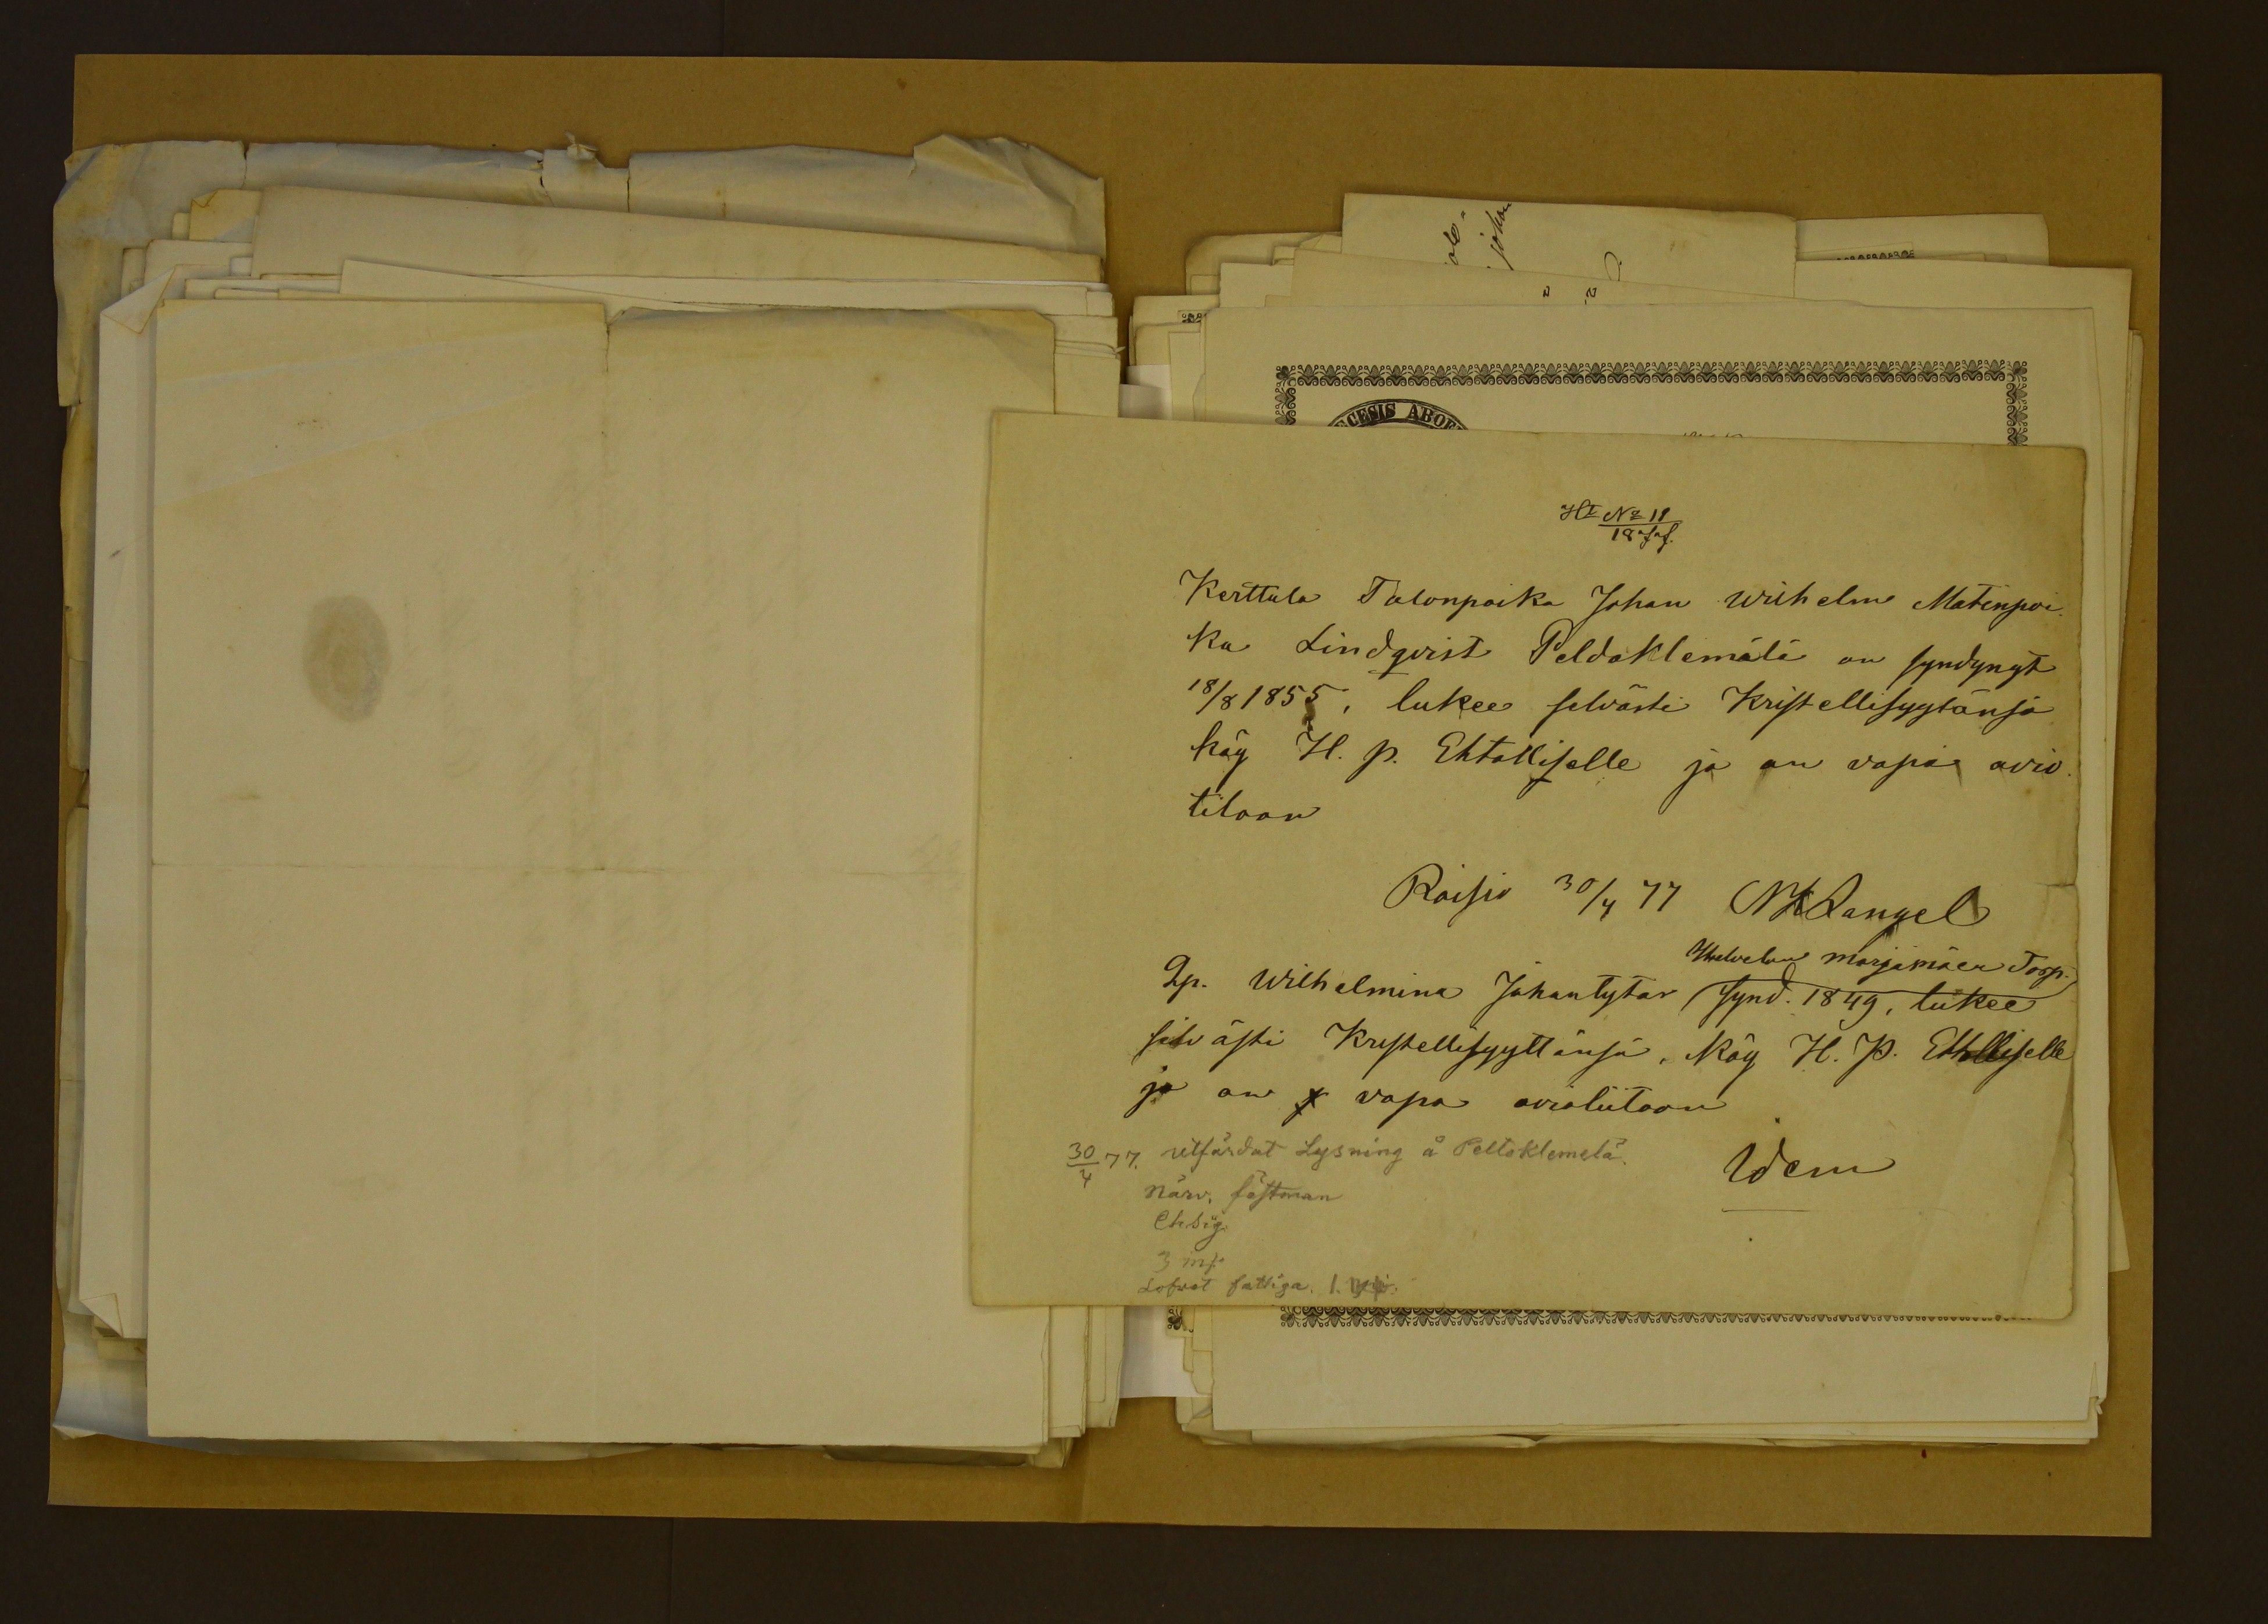 ale-
johan
CESIS ABOE
Ht No 11
1877.
Kerttula Talonpoika Johan Wilhelm Matinpoi-
ka Lindqvist Peldoklemälä on syndynyt
18/8 1855, lukee selvästi Kristellisyytänsä
käy H. p. Ehtolliselle ja on vapa avio-
titoon
Raisio 30/4 77 Langel
marjamäen Torp.
Qp. Wilhelmina Johantytär synd. 1849, lukee
selvästi Kristellisyyttänsä, käy H. P. Ehtolliselle
ja on vapa avioliitoon
Idem
30/4 77. utfärdat Lysning å Peltoklemelä.
närv. fästman
3 mk
Lofvat fattiga. 1.